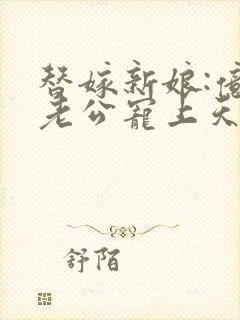 替嫁新娘:
老公宠上天
舒陌